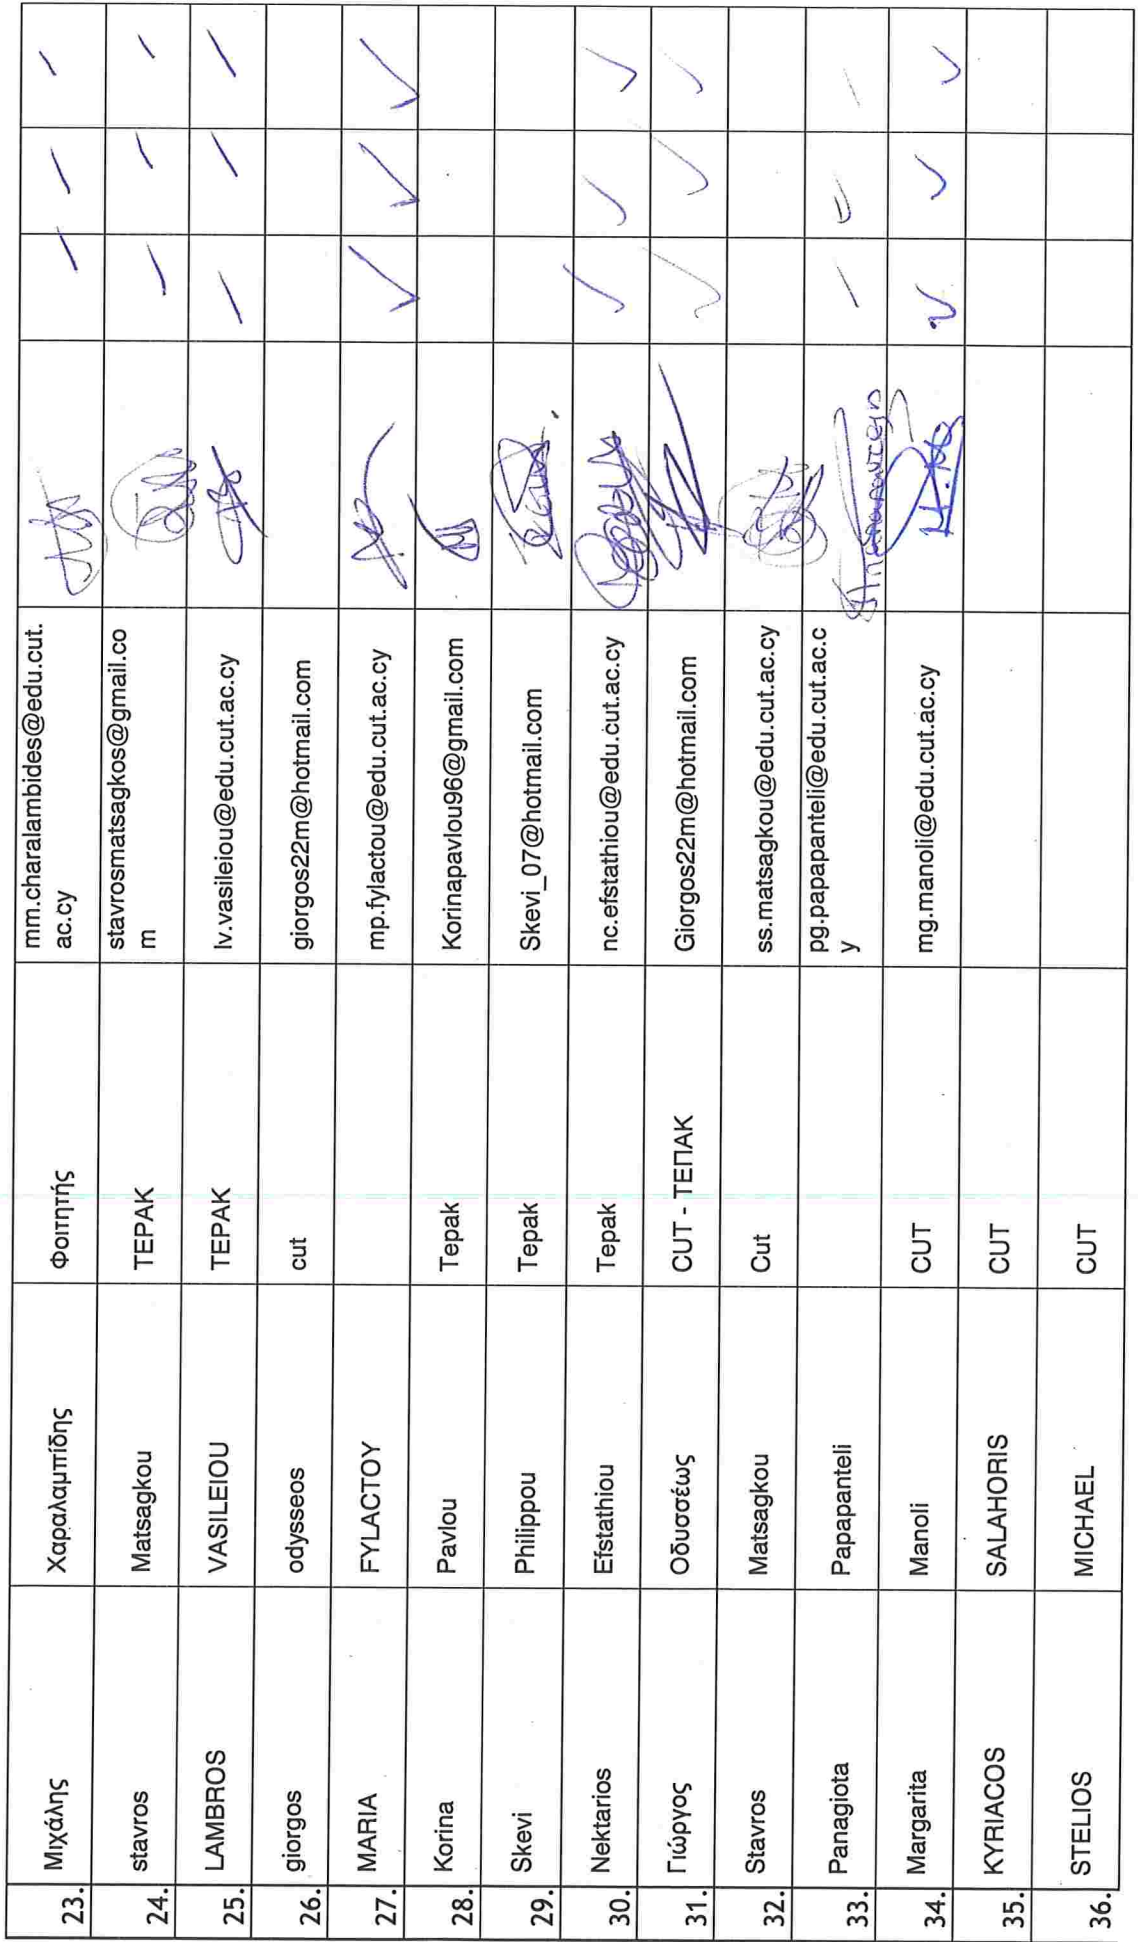 23. Μιχάλης Χαραλαμπίδης Φοιτητής mm.charalambides@edu.cut.
ac.cy
24. stavros Matsagkou TEPAK stavrosmatsagkos@gmail.co
m
25. LAMBROS VASILEIOU TEPAK lv.vasileiou@edu.cut.ac.cy
26. giorgos odysseos cut giorgos22m@hotmail.com
27. MARIA FYLACTOY mp.fylactou@edu.cut.ac.cy
28. Korina Pavlou Tepak Korinapavlou96@gmail.com
29. Skevi Philippou Tepak Skevi_07@hotmail.com
30. Nektarios Efstathiou Tepak nc.efstathiou@edu.cut.ac.cy
31. Γιώργος Οδυσσέως CUT - ΤΕΠΑΚ Giorgos22m@hotmail.com
32. Stavros Matsagkou Cut ss.matsagkou@edu.cut.ac.cy
33. Panagiota Papapanteli pg.papapanteli@edu.cut.ac.c
y
34. Margarita Manoli CUT mg.manoli@edu.cut.ac.cy
35. KYRIACOS SALAHORIS CUT
36. STELIOS MICHAEL CUT